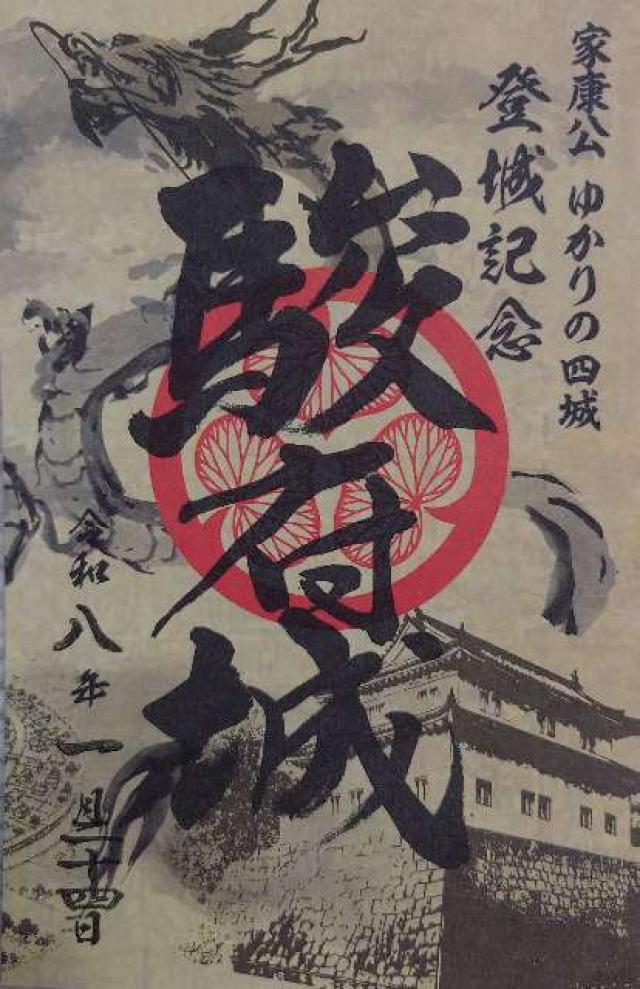 家康公 ゆかりの四城
登城記念
駿府城
令和八年一月二十四日